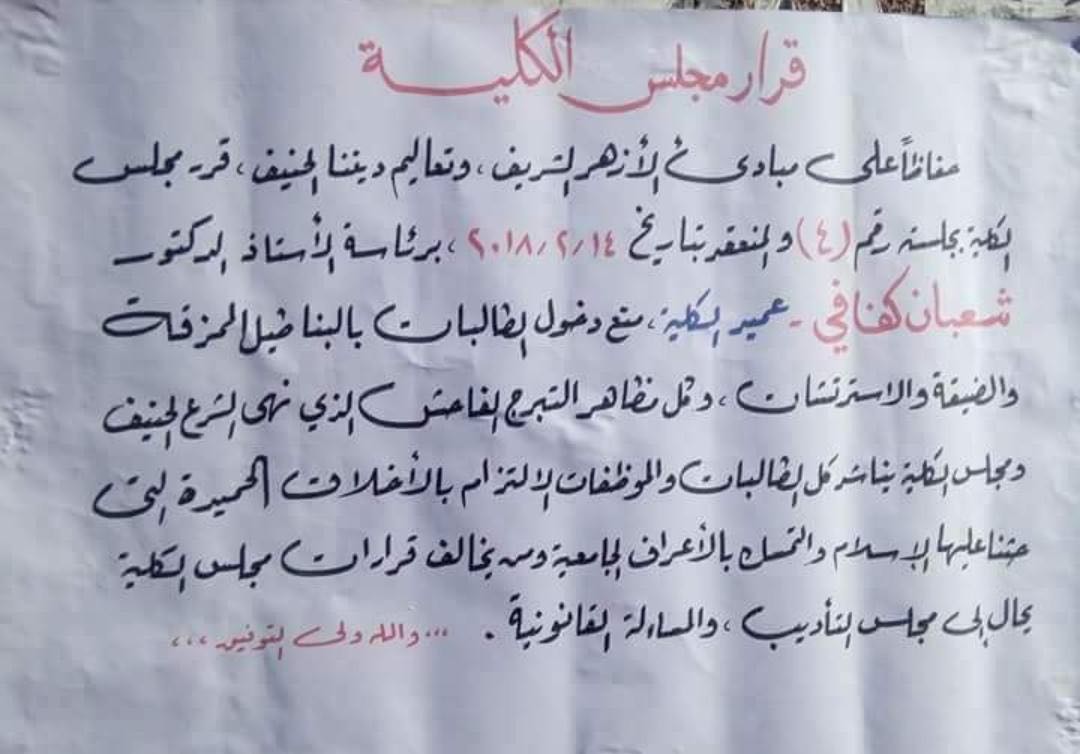 قرار مجلس الكلية
حفاظاً على مبادئ الأزهر الشريف، وتعاليم ديننا الحنيف، قرر مجلس
الكلية بجلسته رقم (٤) والمنعقد بتاريخ ٢٠١٨/٢/١٤، برئاسة الأستاذ الدكتور
شعبان كفافي - عميد الكلية، منع دخول الطالبات بالبناطيل الممزقة
والضيقة والاسترتشات، وكل مظاهر التبرج الفاحش الذي نهى الشرع الحنيف
ومجلس الكلية يناشد كل الطالبات والموظفات الالتزام بالأخلاق الحميدة التى
حثنا عليها الإسلام والتمسك بالأعراف الجامعية ومن يخالف قرارات مجلس الكلية
يحال إلى مجلس التأديب، والمساءلة القانونية. ... والله ولى التوفيق،،،